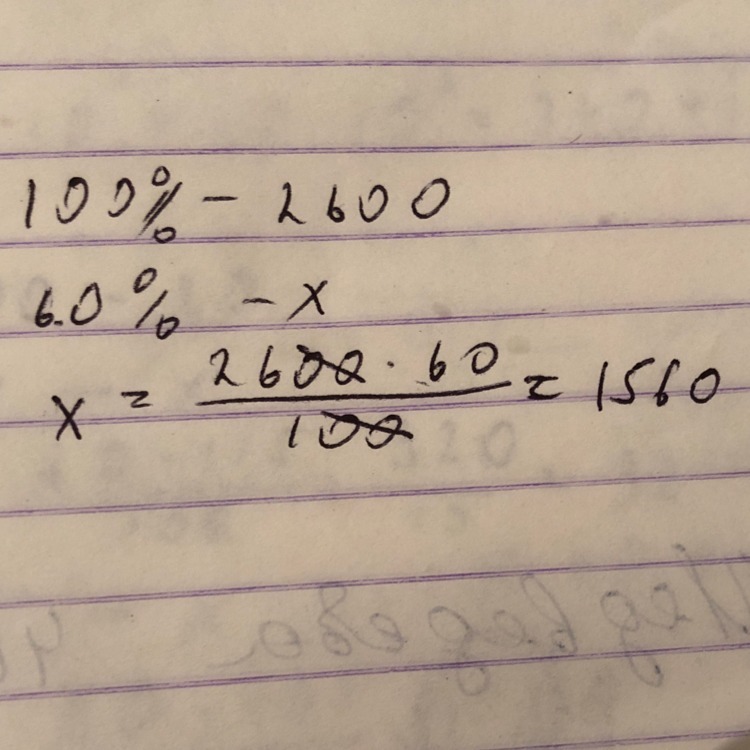 100% - 2600
60% - x
x = 2600 · 60 / 100 = 1560